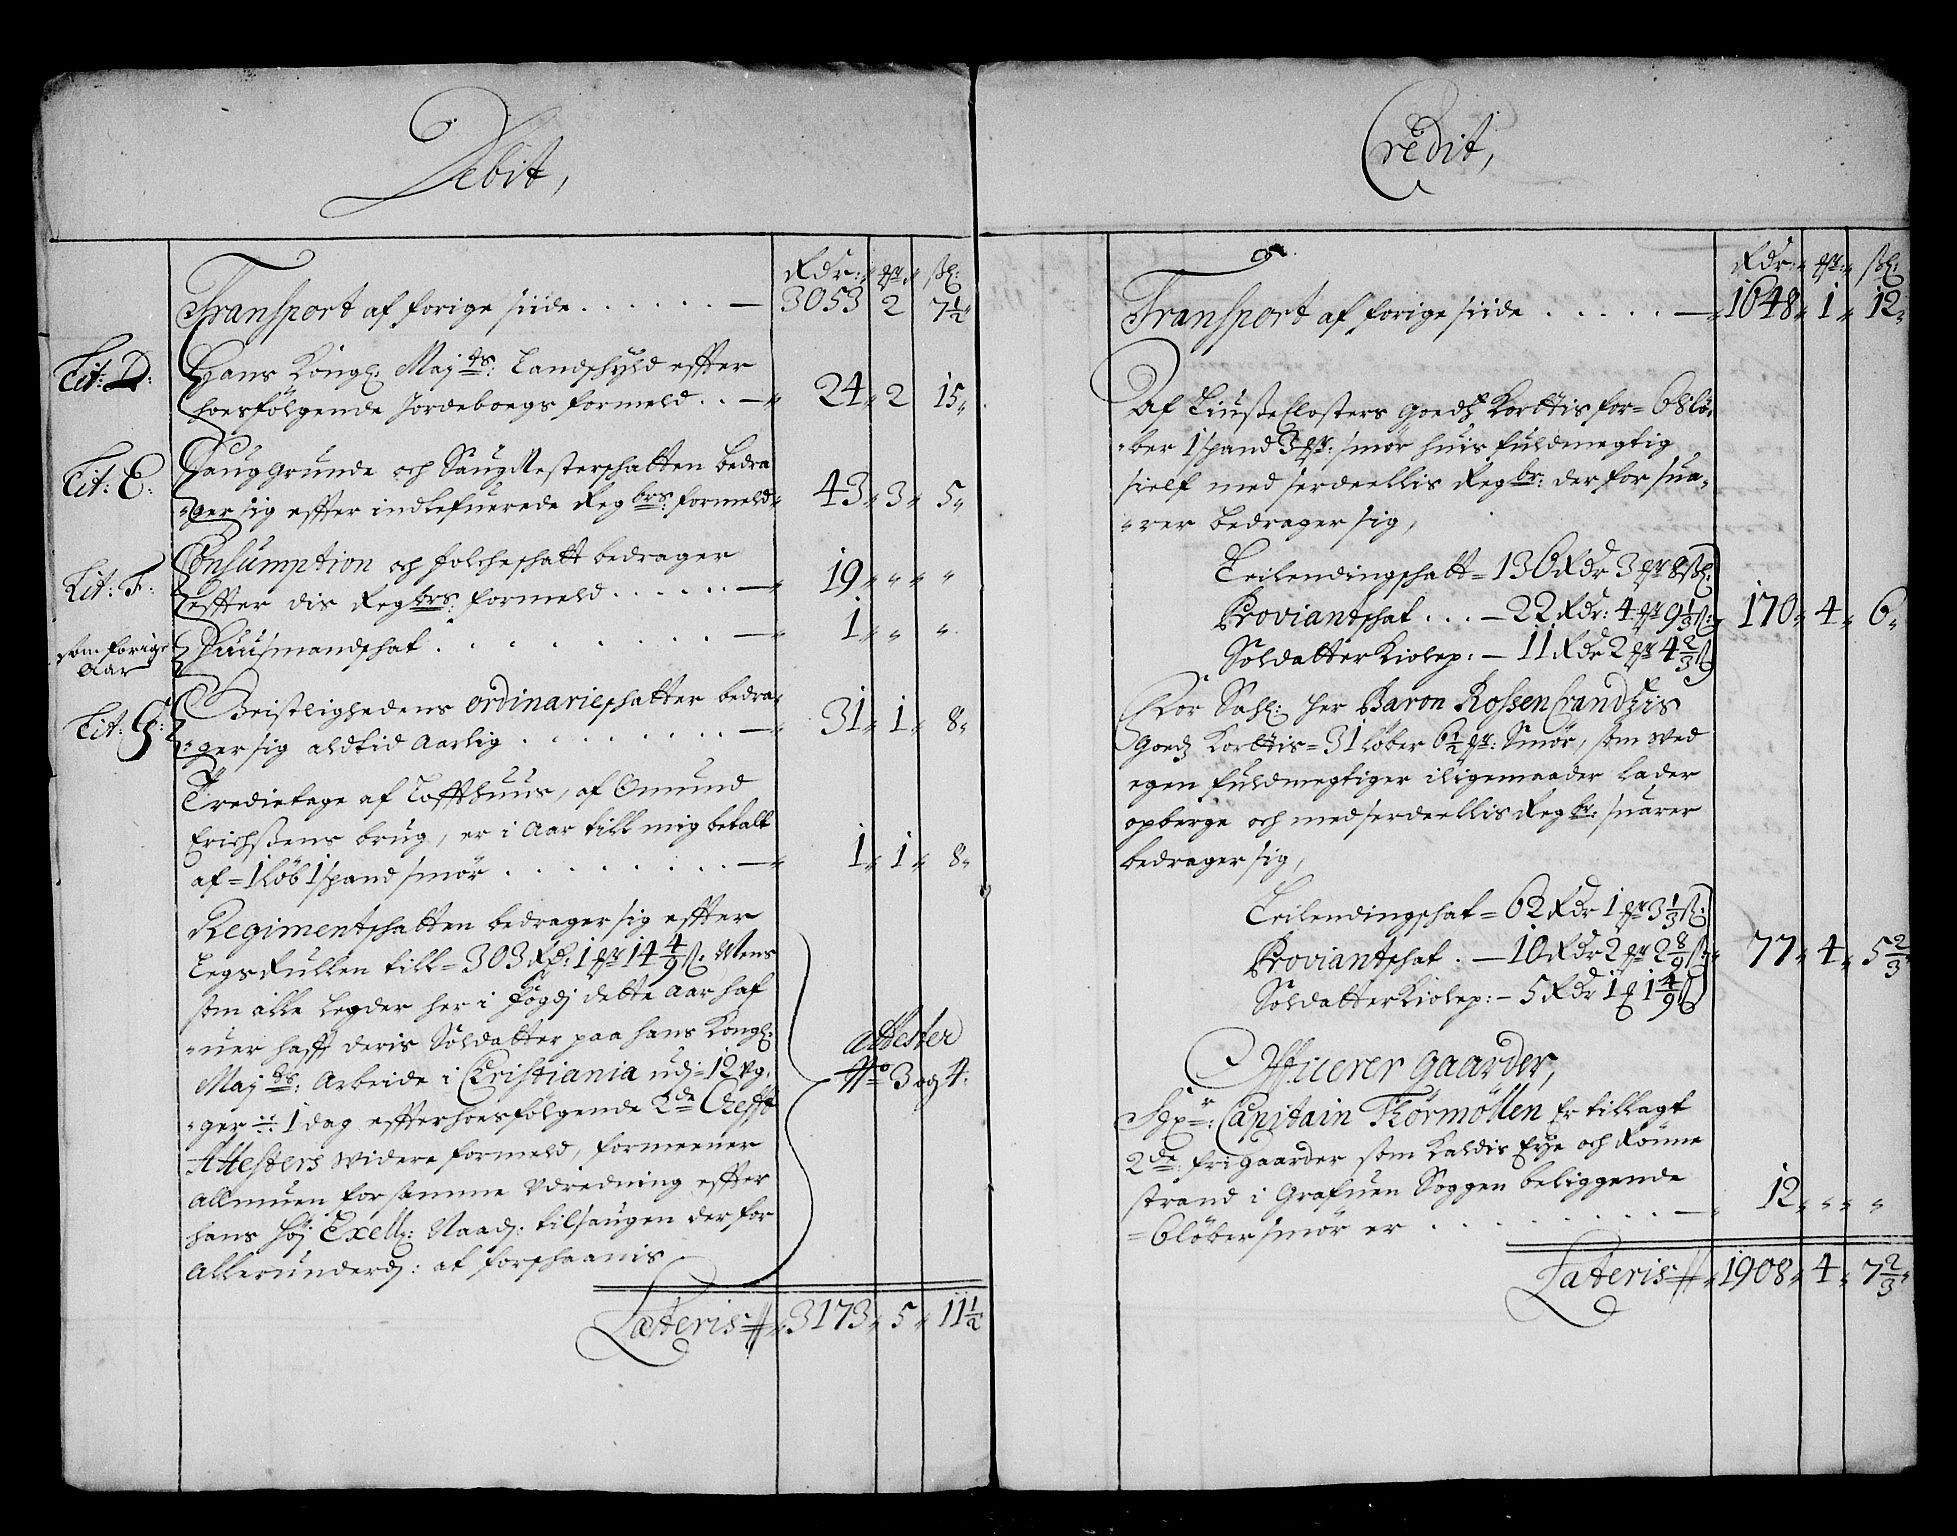 Debit,
Rdr: ort ßl:
Transport af forige siide . . . . . . — 3053 2 7½
Lit: D: Hans Kongl: Maj ts: Landschyld effter
hoesfølgende Jordeboegs formeld . . — 24 2 15
Lit: E: Sauggrunde och Saugmesterschatten bedra
ger sig effter indlefuerede Reg brs: formeld 43 3 5
Lit: F: Consumption och folcheschatt bedrager
effter dis Reg brs: formeld . . . . . . — 19 " "
som forige
Aar
Huusmandschat . . . . . . . — 1 " "
Lit: G: Geistlighedens ordinarie schatter bedra
ger sig aldtid Aarlig . . . . . . . — 31 1 8
Tredietage af Loffthuus, af Omund
Erichsens brug, er i Aar till mig betalt
af = 1 Løb 1 spand smør . . . . . . . — 1 1 8
Regimentschatten bedrager sig effter
Legs Rullen till = 303 Rd: 1 ort 14 4/9 ß: Mens
som alle Legder her i fogdj dette Aar haf
uer hafft deris Soldatter paa hans Kongl:
Maj ts: Arbeide i Christiania udj = 12 Ug
ger 1 dag effter hoesfølgende 2 de Cheffs
Attesters widere formeld, formeener
Allmuen for samme Udredning effter
hans høj Exell: Naads: tilsaugen der for
Allerunderd: at forschaanis
attester
No 3 og 4:
Lateris 3173 5 11½
Credit,
Rdr: ort: ßl:
Transport af forige siide . . . . . — 1648 1 12
Af Liuste Closters goedtz Korttis for = 68 lø
ber 1 spand 3 ort: smør huis fuldmegtig
sielf med serdeellis Reg br: der for sua
rer bedrager sig,
Leilendingschatt = 136 Rdr 3 ort 8 ßl:
Proviantschat . . . — 22 Rdr: 4 ort 9⅓ ß: 170 4 6
Soldatter Kiolep: — 11 Rdr 2 ort 4⅔ ß
For Sahl: her Baron Rossen Crandtzis
goedz Korttis = 31 løber 6½ ort: Smør, som wed
egen fuldmegtiger iligemaader lader
opberge och med serdeellis Reg br: suarer
bedrager sig,
Leilendingschat = 62 Rdr 1 ort 3⅓ ß:
Proviantschat . — 10 Rdr 2 ort 2 8/9 ß 77 4 5⅔
Soldatter Kiolep: — 5 Rdr 1 1 4/9 ß
Officerer gaarder,
Capitain Thormøllen Er tillagt
2 de: frigaarder som Kaldis Eye och Rønne
strand i Grafuen Soggen beliggende
6 løber smør er . . . . . . . . — 12 " "
Lateris 1908 4 7⅔